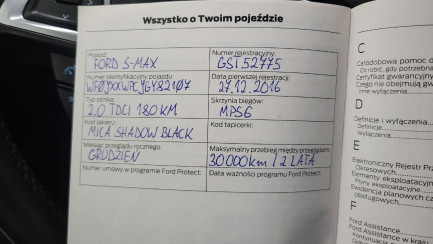 Wszystko o Twoim pojeździe
Pojazd:
FORD S-MAX
Numer rejestracyjny:
GSI 52775
Numer identyfikacyjny pojazdu:
WF0YXXWPCYGY82107
Data pierwszej rejestracji:
27.12.2016
Typ silnika:
2.0 TDCI 180KM
Skrzynia biegów:
MPS6
Kod lakieru:
MICA SHADOW BLACK
Kod tapicerki:
Miesiąc przeglądu rocznego:
GRUDZIEŃ
Maksymalny przebieg między przeglądami:
30000km / 2 LATA
Numer umowy w programie Ford Protect:
Data ważności programu Ford Protect:
C
Całodobowa pomoc d
Co robić, gdy potrzebna
Certyfikat gwarancyjny
Czego nie obejmują gw
Inne wyłączenia
D
Definicje i wyłączenia
Definicje
Wyłączenia
E
Elektroniczny Rejestr Prz
Okresowych
Elementy eksploatacyjn
Pasy eksploatacyjne
Ewidencja powiadamiani
obsługowych
F
Ford Assistance
Ford Assistance w kraju